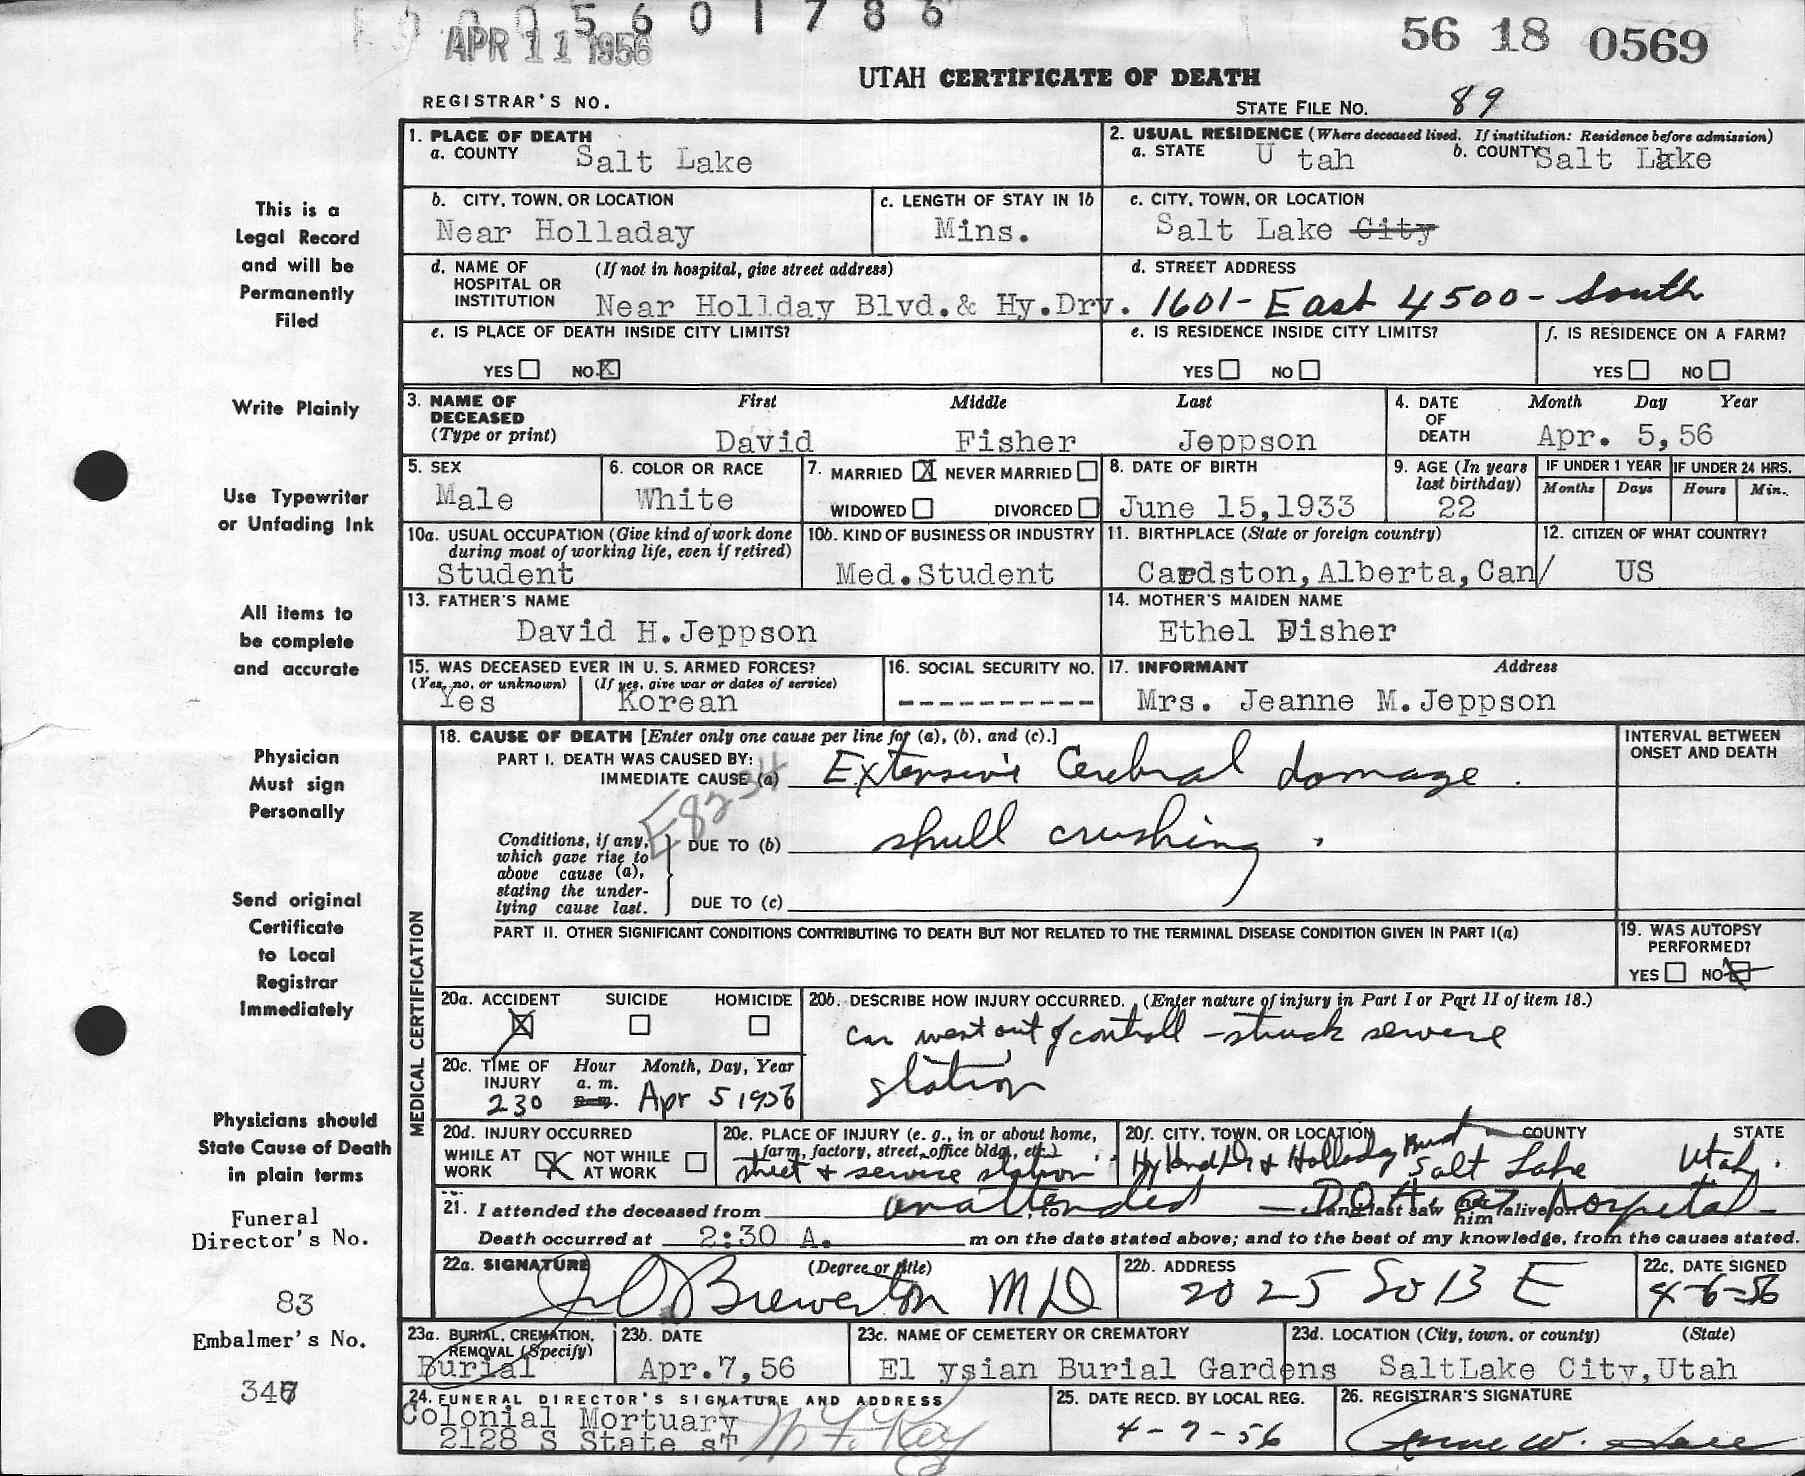 5601786
APR 11 1956
56 18 0569
UTAH CERTIFICATE OF DEATH
REGISTRAR'S NO.
STATE FILE NO. 89
1. PLACE OF DEATH
a. COUNTY Salt Lake
2. USUAL RESIDENCE (Where deceased lived. If institution: Residence before admission)
a. STATE U tah b. COUNTY Salt Lake
b. CITY, TOWN, OR LOCATION
Near Holladay
c. LENGTH OF STAY IN 1b
Mins.
c. CITY, TOWN, OR LOCATION
Salt Lake City
d. NAME OF HOSPITAL OR INSTITUTION (If not in hospital, give street address)
Near Hollday Blvd.& Hy.Drv.
d. STREET ADDRESS
1601- East 4500- South
e. IS PLACE OF DEATH INSIDE CITY LIMITS?
YES NO X
e. IS RESIDENCE INSIDE CITY LIMITS?
YES NO
f. IS RESIDENCE ON A FARM?
YES NO
3. NAME OF DECEASED (Type or print)
First Middle Last
David Fisher Jeppson
4. DATE OF DEATH Month Day Year
Apr. 5, 56
5. SEX
Male
6. COLOR OR RACE
White
7. MARRIED X NEVER MARRIED
WIDOWED DIVORCED
8. DATE OF BIRTH
June 15,1933
9. AGE (In years last birthday)
22
IF UNDER 1 YEAR
Months Days
IF UNDER 24 HRS.
Hours Min.
10a. USUAL OCCUPATION (Give kind of work done during most of working life, even if retired)
Student
10b. KIND OF BUSINESS OR INDUSTRY
Med.Student
11. BIRTHPLACE (State or foreign country)
Cardston,Alberta,Can/
12. CITIZEN OF WHAT COUNTRY?
US
13. FATHER'S NAME
David H.Jeppson
14. MOTHER'S MAIDEN NAME
Ethel Fisher
15. WAS DECEASED EVER IN U. S. ARMED FORCES?
(Yes, no, or unknown) (If yes, give war or dates of service)
Yes Korean
16. SOCIAL SECURITY NO.
----------
17. INFORMANT Address
Mrs. Jeanne M.Jeppson
18. CAUSE OF DEATH [Enter only one cause per line for (a), (b), and (c).]
INTERVAL BETWEEN ONSET AND DEATH
PART I. DEATH WAS CAUSED BY:
IMMEDIATE CAUSE (a) Extensive Cerebral damage.
Conditions, if any, which gave rise to above cause (a), stating the underlying cause last.
DUE TO (b) skull crushing.
DUE TO (c)
PART II. OTHER SIGNIFICANT CONDITIONS CONTRIBUTING TO DEATH BUT NOT RELATED TO THE TERMINAL DISEASE CONDITION GIVEN IN PART I(a)
19. WAS AUTOPSY PERFORMED?
YES NO X
20a. ACCIDENT SUICIDE HOMICIDE
X
20b. DESCRIBE HOW INJURY OCCURRED. (Enter nature of injury in Part I or Part II of item 18.)
Car went out of controll - struck service
station
20c. TIME OF INJURY Hour a. m. p. m. Month, Day, Year
230 Apr 5 1956
20d. INJURY OCCURRED
WHILE AT WORK X NOT WHILE AT WORK
20e. PLACE OF INJURY (e. g., in or about home, farm, factory, street, office bldg., etc.)
street & service station
20f. CITY, TOWN, OR LOCATION COUNTY STATE
Hyland Dr & Holladay Salt Lake Utah.
MEDICAL CERTIFICATION
21. I attended the deceased from unattended, to - D.O.A. at hospital - and last saw her him alive on
Death occurred at 2:30 A. m on the date stated above; and to the best of my knowledge, from the causes stated.
22a. SIGNATURE (Degree or title)
Brewerton MD
22b. ADDRESS
2025 So 13 E
22c. DATE SIGNED
4-6-56
23a. BURIAL, CREMATION, REMOVAL (Specify)
Burial
23b. DATE
Apr.7,56
23c. NAME OF CEMETERY OR CREMATORY
El ysian Burial Gardens
23d. LOCATION (City, town, or county) (State)
SaltLake City,Utah
24. FUNERAL DIRECTOR'S SIGNATURE AND ADDRESS
Colonial Mortuary
2128 S State sT
25. DATE RECD. BY LOCAL REG.
4-7-56
26. REGISTRAR'S SIGNATURE
This is a
Legal Record
and will be
Permanently
Filed
Write Plainly
Use Typewriter
or Unfading Ink
All items to
be complete
and accurate
Physician
Must sign
Personally
Send original
Certificate
to Local
Registrar
Immediately
Physicians should
State Cause of Death
in plain terms
Funeral
Director's No.
83
Embalmer's No.